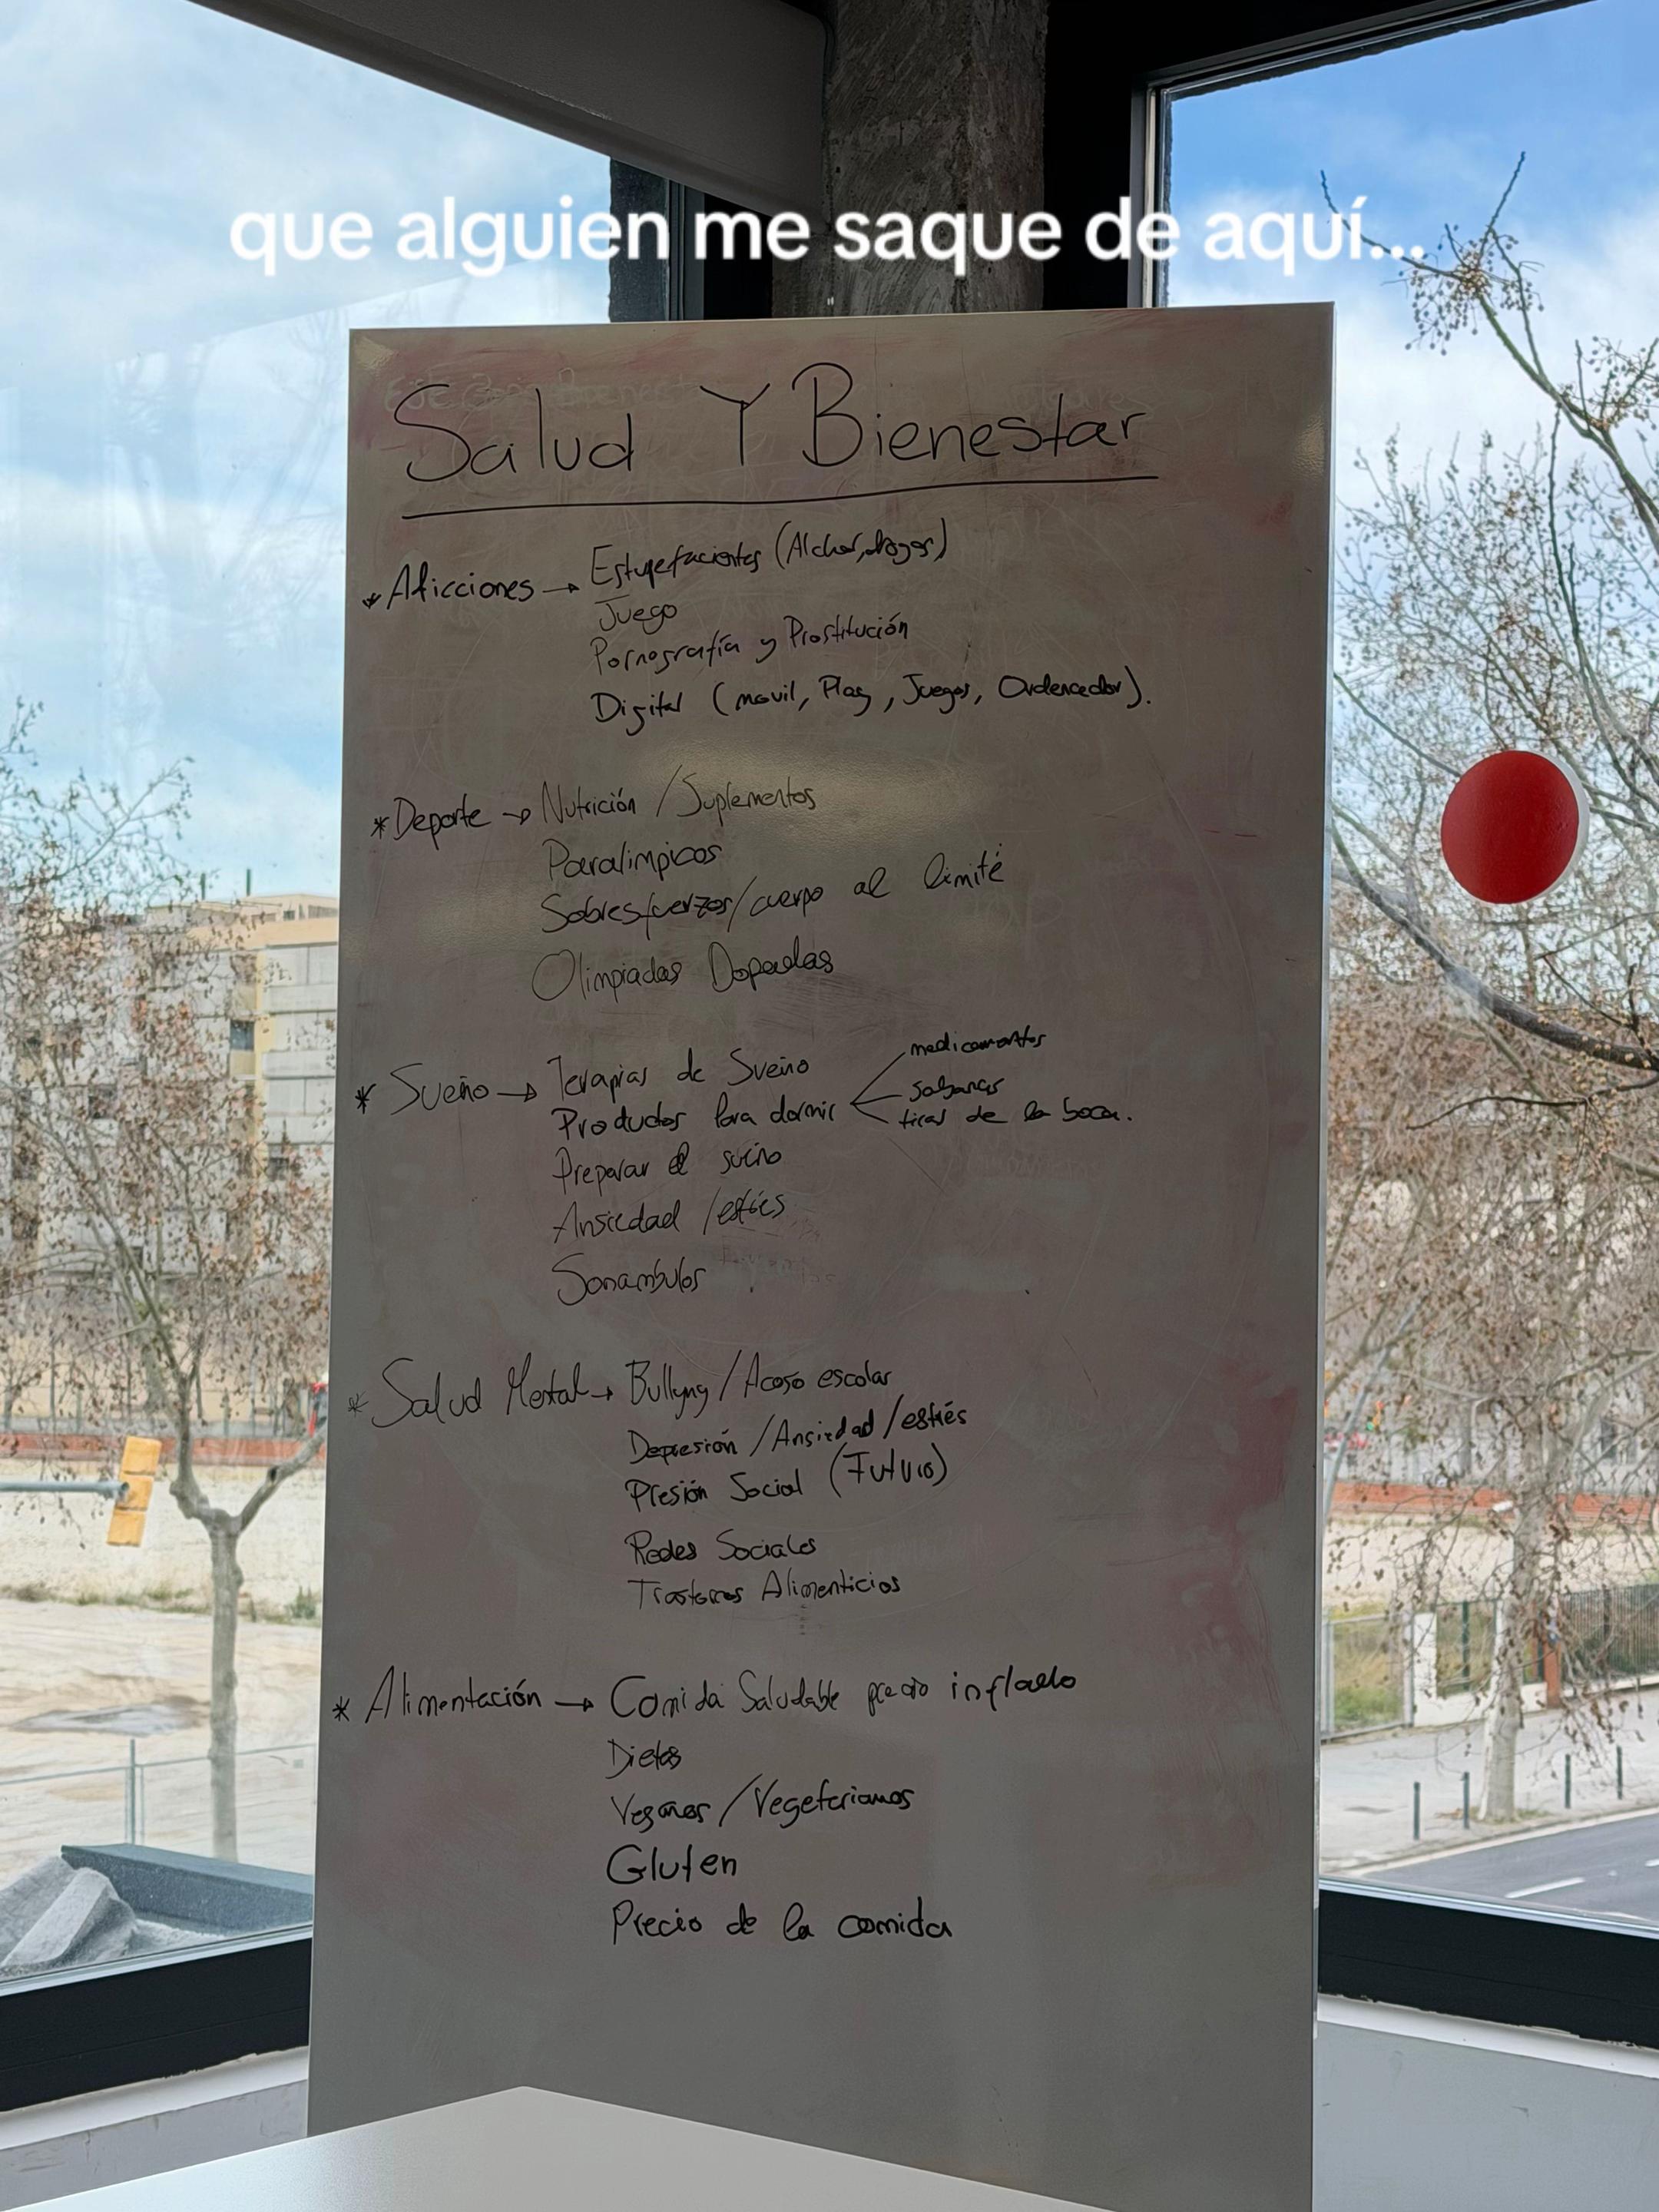 que alguien me saque de aquí...
Salud Y Bienestar
* Aficciones → Estupefacientes (Alchol, drogas)
Juego
Pornografía y Prostitución
Digital (movil, Play, Juegos, Ordenador).
* Deporte → Nutrición / Suplementos
Paralimpicos
Sobresfuerzos/cuerpo al límite
Olimpiadas Dopadas
* Sueño → Terapias de Sueño
Productos Para dormir
medicamentos
sabanas
tiras de la boca.
Preparar el sueño
Ansiedad / estrés
Sonambulos
* Salud Mental → Bullyng / Acoso escolar
Depresión / Ansiedad / estrés
Presión Social (Futuro)
Redes Sociales
Trastornos Alimenticios
* Alimentación → Comida Saludable precio inflado
Dietas
Veganos / Vegetarianos
Gluten
Precio de la comida